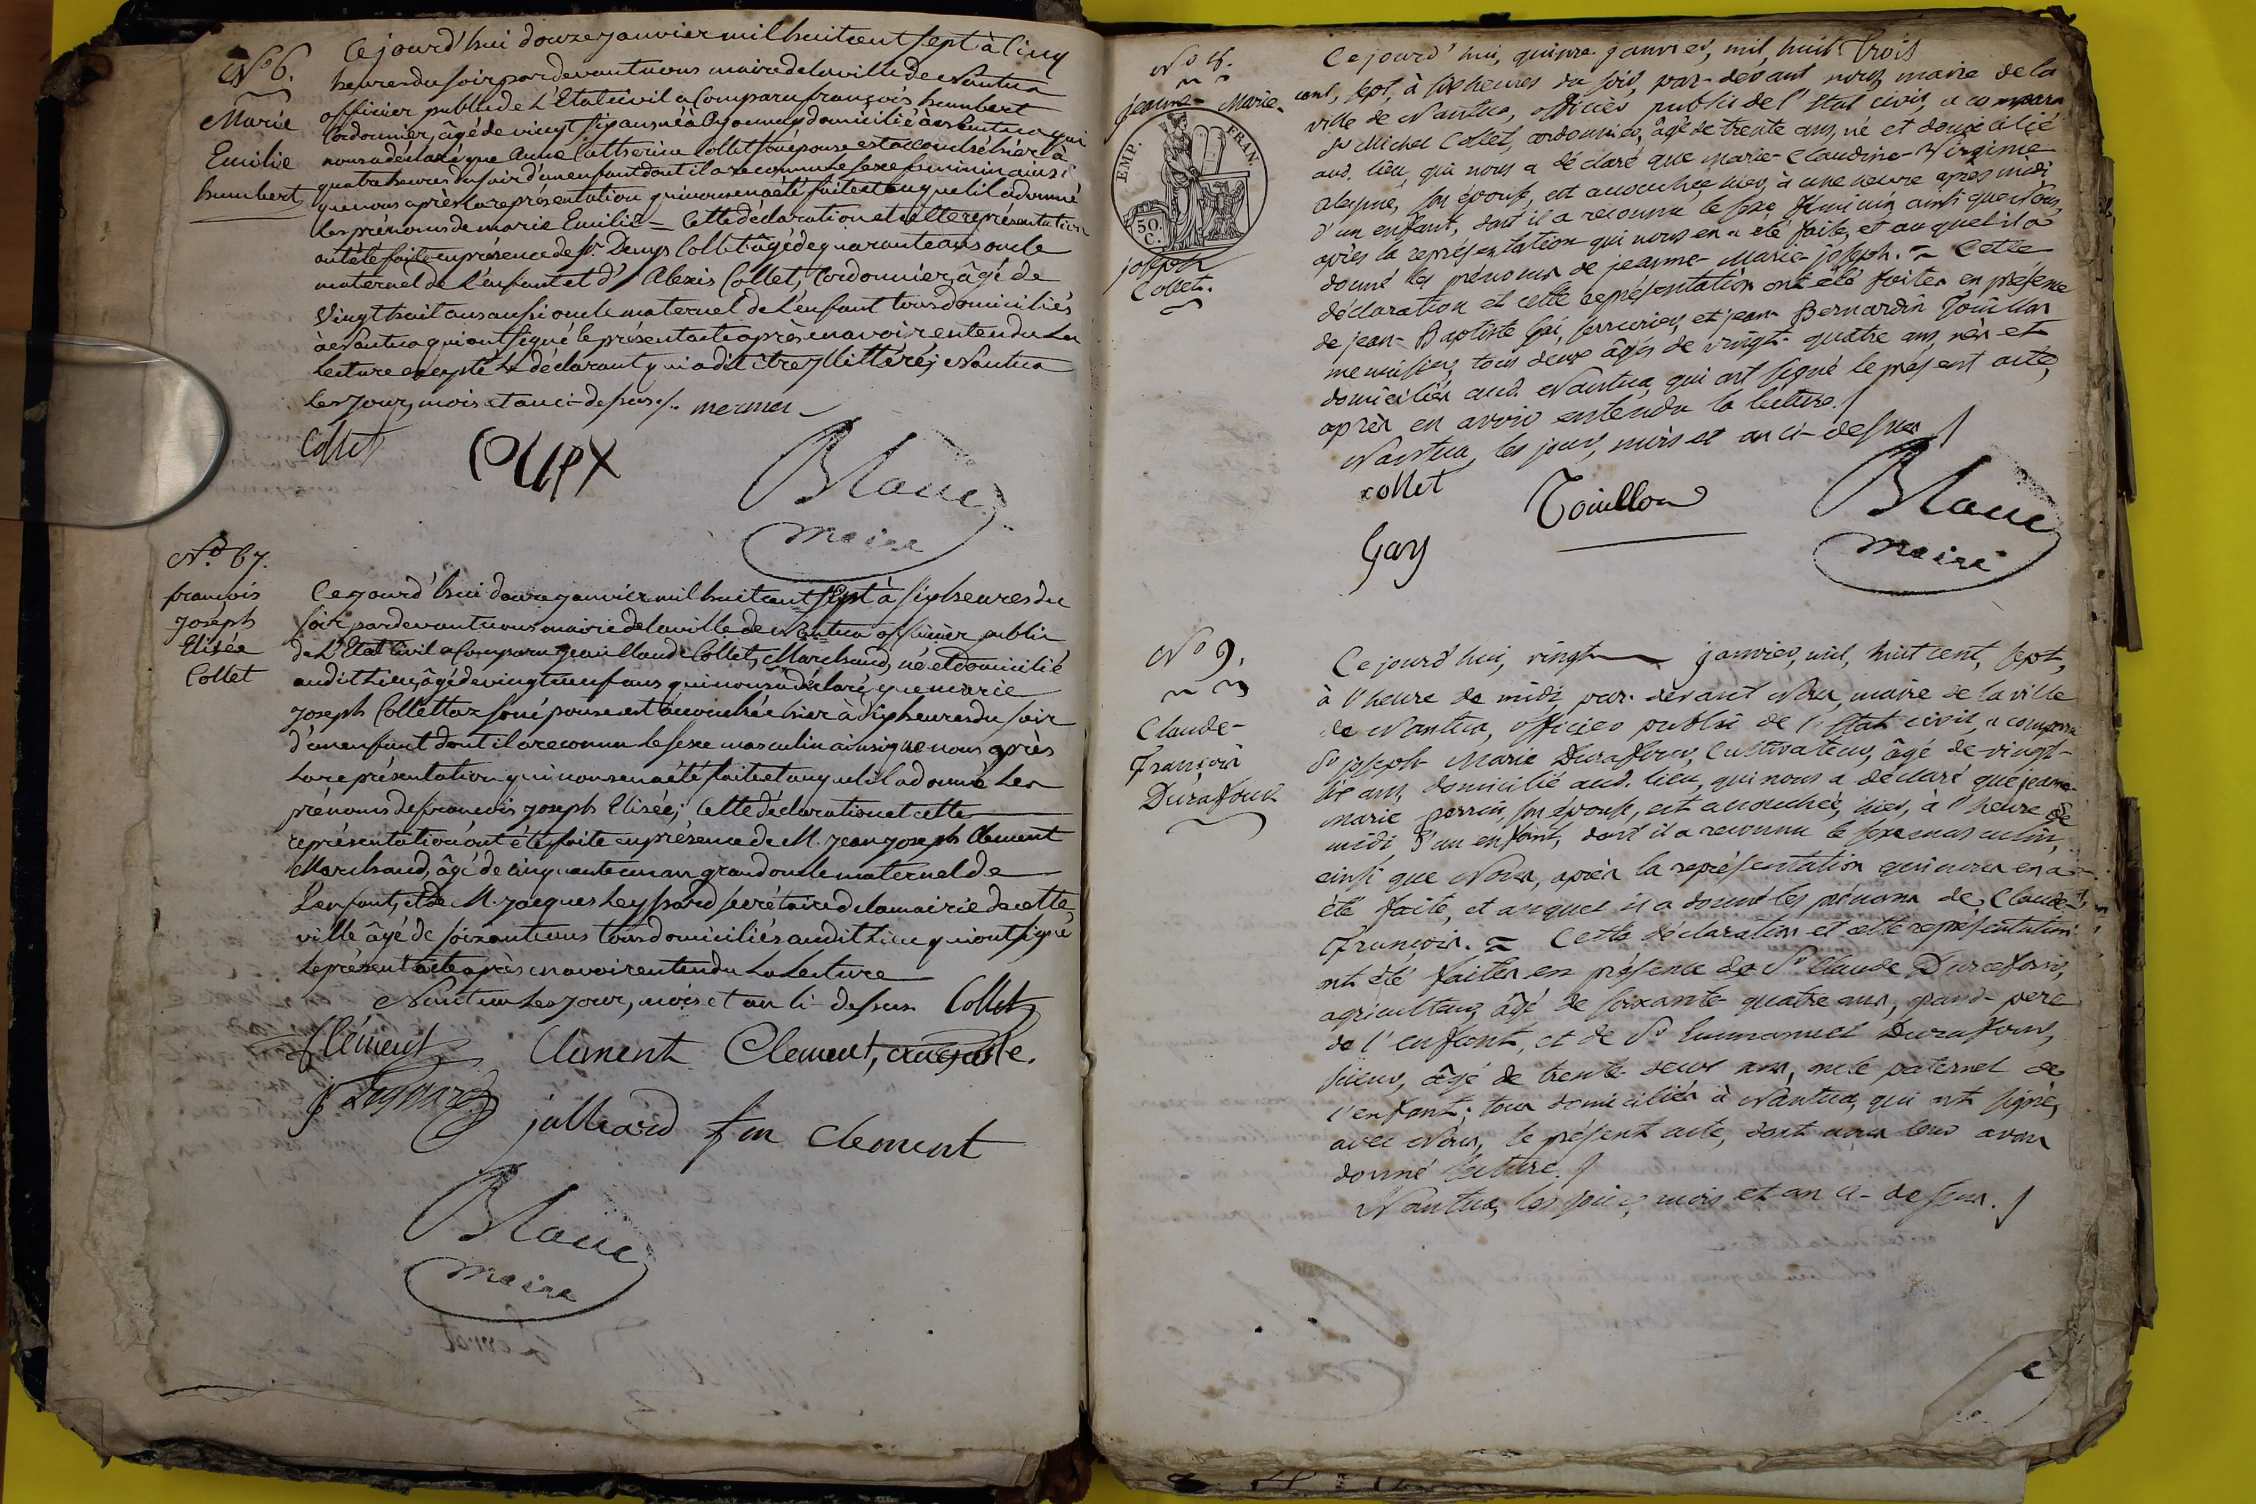 N.º 6.
Marie
Emilie
humbert
Ce jourd'hui douze janvier mil huit cent sept à cinq
heures du soir par devant nous maire de la ville de Nantua
officier public de L'Etat Civil a Comparu françois humbert
Cordonnier, âgé de vingt six ans né à Oyonnax domicilié à Nantua qui
nous a déclaré que Anne Catherine Collet son épouse est accouchée hier à
quatre heures du soir d'un enfant dont il a reconnu le sexe feminin ainsi
que nous après la représentation qui nous en a été faite et auquel il a donné
Les prénoms de marie Emilie = Cette déclaration et cette représentation
ont été faite en présence de Sr. Denys Collet âgé de quarante ans oncle
maternel de L'enfant et d' Alexis Collet, Cordonnier, âgé de
Vingt huit ans aussi oncle maternel de L'enfant tous domiciliés
à Nantua qui ont signé le présent acte après en avoir entendu La
Lecture excepté Le déclarant qui a dit être illitéré; Nantua
Les Jour, mois et an ci-dessus
Collet
Blanc
maire
N.º 7.
françois
Joseph
Elisée
Collet
Ce jourd'hui douze janvier mil huit cent sept à six heures du
soir par devant nous maire de la ville de Nantua officier public
de L'Etat Civil a Comparu Jean Claude Collet, Marchand, né et domicilié
audit Lieu, âgé de vingt neuf ans qui nous a déclaré que marie
Joseph Collettaz son épouse est accouchée hier à six heures du soir
d'un enfant dont il a reconnu le sexe masculin ainsi que nous après
La représentation qui nous en a été faite et auquel il a donné Les
prénoms de françois Joseph Elisée; Cette déclaration et cette
représentation ont été faite en présence de M. Jean Joseph Clement
Marchand, âgé de cinquante un an grand oncle maternel de
L'enfant, et de M. Jacques Leyssard secrétaire de la mairie de cette
ville âgé de soixante ans tous domiciliés audit Lieu qui ont signé
Le présent acte après en avoir entendu La Lecture
Nantua Les Jour, mois et an ci-dessus Collet
Clément Clement Clement, auguste.
julliard fin Clement
Blanc
maire
N.º 8.
jeanne-Marie-
EMP. FRAN.
50.
C.
joseph
Collet.
Ce jourd'hui, quinze janvier, mil, huit
cent, sept, à six heures du soir, par-devant nous, maire de la
ville de Nantua, officier public de l'Etat civil, a comparu
Sr Michel Collet, cordonnier, âgé de trente ans, né et domicilié
aud. lieu, qui nous a déclaré que Marie-Claudine-Virginie
son épouse, est accouchée, hier, à une heure après midi
d'un enfant, dont il a reconnu le sexe féminin ainsi que Nous,
après la représentation qui nous en a été faite, et auquel il a
donné les prénoms de jeanne-Marie-joseph. = Cette
déclaration et cette représentation ont été faites en présence
de jean-Baptiste Gai, serrurier, et jean Bernardin Touillon
menuisier, tous deux âgés de vingt-quatre ans, nés et
domiciliés aud. Nantua, qui ont signé le présent acte,
après en avoir entendu la lecture.
Nantua, les jour, mois et an ci-dessus
collet
Touillon
Blanc
maire
Gay
N.º 9.
Claude-
François
Durafour
Ce jourd'hui, vingt janvier, mil, huit cent, sept,
à l'heure de midi, par-devant Nous, maire de la ville
de Nantua, officier public de l'Etat civil, a comparu
Sr joseph Marie Durafour, Cultivateur, âgé de vingt-
six ans, domicilié aud. lieu, qui nous a déclaré que jeanne-
Marie perrin, son épouse, est accouchée, hier, à l'heure de
midi d'un enfant, dont il a reconnu le sexe masculin,
ainsi que Nous, après la représentation qui nous en a
été faite, et auquel il a donné les prénoms de Claude-
François. = Cette déclaration et cette représentation
ont été faites en présence de Sr Claude Durafour,
agriculteur, âgé de soixante-quatre ans, grand-père
de l'enfant, et de Sr Emmanuel Durafour,
âgé de trente deux ans, oncle paternel de
l'enfant; tous domiciliés à Nantua, qui ont signé,
avec Nous, le présent acte, dont nous leur avons
donné lecture.
Nantua, les jour, mois et an ci-dessus.